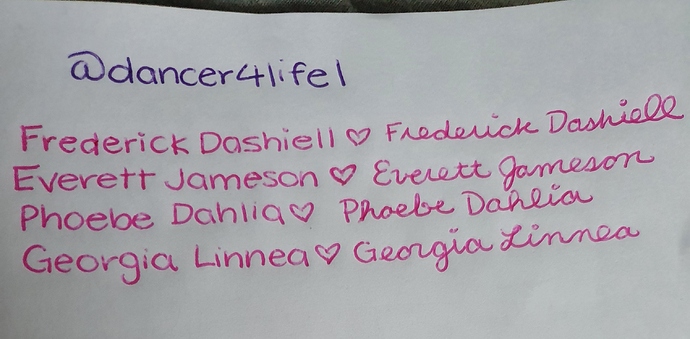 @dancer4life1
Frederick Dashiell ♡ Frederick Dashiell
Everett Jameson ♡ Everett Jameson
Phoebe Dahlia ♡ Phoebe Dahlia
Georgia Linnea ♡ Georgia Linnea